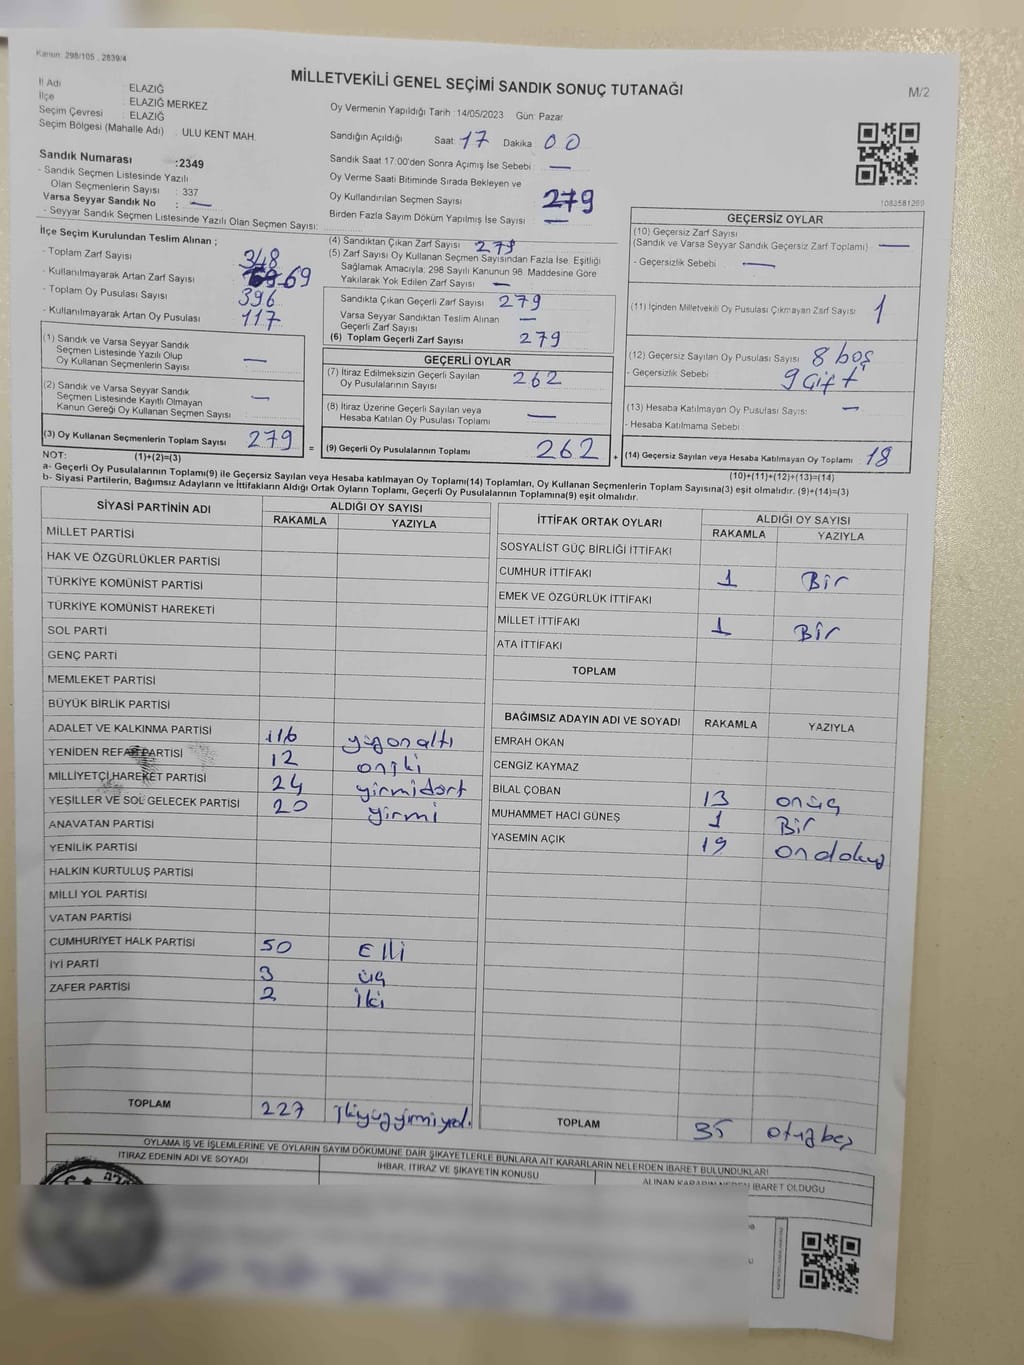 Kanun: 298/105 , 2839/4
MİLLETVEKİLİ GENEL SEÇİMİ SANDIK SONUÇ TUTANAĞI
M/2
İl Adı ELAZIĞ
İlçe ELAZIĞ MERKEZ
Seçim Çevresi : ELAZIĞ
Seçim Bölgesi (Mahalle Adı) : ULU KENT MAH.
Sandık Numarası :2349
- Sandık Seçmen Listesinde Yazılı
Olan Seçmenlerin Sayısı : 337
Varsa Seyyar Sandık No : —
- Seyyar Sandık Seçmen Listesinde Yazılı Olan Seçmen Sayısı:
Oy Vermenin Yapıldığı Tarih :14/05/2023 Gün: Pazar
Sandığın Açıldığı Saat 17 Dakika 00
Sandık Saat 17:00'den Sonra Açımış İse Sebebi : —
Oy Verme Saati Bitiminde Sırada Bekleyen ve
Oy Kullandırılan Seçmen Sayısı 279
Birden Fazla Sayım Döküm Yapılmış İse Sayısı —
1083581269
İlçe Seçim Kurulundan Teslim Alınan ;
- Toplam Zarf Sayısı 348
- Kullanılmayarak Artan Zarf Sayısı 69
- Toplam Oy Pusulası Sayısı 396
- Kullanılmayarak Artan Oy Pusulası 117
(1) Sandık ve Varsa Seyyar Sandık
Seçmen Listesinde Yazılı Olup
Oy Kullanan Seçmenlerin Sayısı —
(2) Sandık ve Varsa Seyyar Sandık
Seçmen Listesinde Kayıtlı Olmayan
Kanun Gereği Oy Kullanan Seçmen Sayısı —
(3) Oy Kullanan Seçmenlerin Toplam Sayısı 279 =
(1)+(2)=(3)
(4) Sandıktan Çıkan Zarf Sayısı 279
(5) Zarf Sayısı Oy Kullanan Seçmen Sayısından Fazla İse. Eşitliği
Sağlamak Amacıyla; 298 Sayılı Kanunun 98. Maddesine Göre
Yakılarak Yok Edilen Zarf Sayısı : —
Sandıkta Çıkan Geçerli Zarf Sayısı 279
Varsa Seyyar Sandıktan Teslim Alınan
Geçerli Zarf Sayısı —
(6) Toplam Geçerli Zarf Sayısı 279
GEÇERLİ OYLAR
(7) İtiraz Edilmeksizin Geçerli Sayılan
Oy Pusulalarının Sayısı 262
(8) İtiraz Üzerine Geçerli Sayılan veya
Hesaba Katılan Oy Pusulası Toplamı —
(9) Geçerli Oy Pusulalarının Toplamı 262 +
GEÇERSİZ OYLAR
(10) Geçersiz Zarf Sayısı
(Sandık ve Varsa Seyyar Sandık Geçersiz Zarf Toplamı) —
- Geçersizlik Sebebi : —
(11) İçinden Milletvekili Oy Pusulası Çıkmayan Zarf Sayısı: 1
(12) Geçersiz Sayılan Oy Pusulası Sayısı 8 boş
- Geçersizlik Sebebi : 9 Çift
(13) Hesaba Katılmayan Oy Pusulası Sayısı: —
- Hesaba Katılmama Sebebi :
(14) Geçersiz Sayılan veya Hesaba Katılmayan Oy Toplamı 18
(10)+(11)+(12)+(13)=(14)
NOT:
a- Geçerli Oy Pusulalarının Toplamı(9) ile Geçersiz Sayılan veya Hesaba katılmayan Oy Toplamı(14) Toplamları, Oy Kullanan Seçmenlerin Toplam Sayısına(3) eşit olmalıdır. (9)+(14)=(3)
b- Siyasi Partilerin, Bağımsız Adayların ve İttifakların Aldığı Ortak Oyların Toplamı, Geçerli Oy Pusulalarının Toplamına(9) eşit olmalıdır.
SİYASİ PARTİNİN ADI ALDIĞI OY SAYISI
RAKAMLA YAZIYLA
MİLLET PARTİSİ
HAK VE ÖZGÜRLÜKLER PARTİSİ
TÜRKİYE KOMÜNİST PARTİSİ
TÜRKİYE KOMÜNİST HAREKETİ
SOL PARTİ
GENÇ PARTİ
MEMLEKET PARTİSİ
BÜYÜK BİRLİK PARTİSİ
ADALET VE KALKINMA PARTİSİ 116 yüzonaltı
YENİDEN REFAH PARTİSİ 12 oniki
MİLLİYETÇİ HAREKET PARTİSİ 24 yirmidört
YEŞİLLER VE SOL GELECEK PARTİSİ 20 yirmi
ANAVATAN PARTİSİ
YENİLİK PARTİSİ
HALKIN KURTULUŞ PARTİSİ
MİLLİ YOL PARTİSİ
VATAN PARTİSİ
CUMHURİYET HALK PARTİSİ 50 Elli
İYİ PARTİ 3 üç
ZAFER PARTİSİ 2 iki
TOPLAM 227 ikiyüzyirmiyedi.
İTTİFAK ORTAK OYLARI ALDIĞI OY SAYISI
RAKAMLA YAZIYLA
SOSYALİST GÜÇ BİRLİĞİ İTTİFAKI
CUMHUR İTTİFAKI 1 Bir
EMEK VE ÖZGÜRLÜK İTTİFAKI
MİLLET İTTİFAKI 1 Bir
ATA İTTİFAKI
TOPLAM
BAĞIMSIZ ADAYIN ADI VE SOYADI RAKAMLA YAZIYLA
EMRAH OKAN
CENGİZ KAYMAZ
BİLAL ÇOBAN 13 onüç
MUHAMMET HACI GÜNEŞ 1 Bir
YASEMİN AÇIK 19 ondokuz
TOPLAM 35 otuzbeş
OYLAMA İŞ VE İŞLEMLERİNE VE OYLARIN SAYIM DÖKÜMÜNE DAİR ŞİKAYETLERLE BUNLARA AİT KARARLARIN NELERDEN İBARET BULUNDUKLARI
İTİRAZ EDENİN ADI VE SOYADI İHBAR, İTİRAZ VE ŞİKAYETİN KONUSU ALINAN KARARIN NEDEN İBARET OLDUĞU